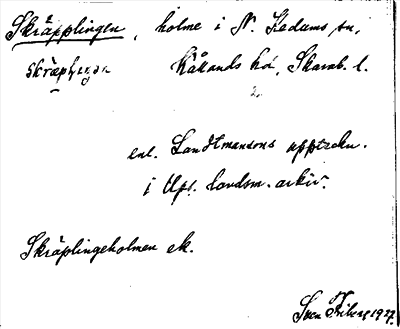 Skräpplingen, holme i N. Kedums sn,
Kållands hd, Skarab. l.
2.
enl. Landtmansons uppteckn.
i Upl. landsm.-arkiv.
Skräplingeholmen ek.
Sven Friberg 1927.